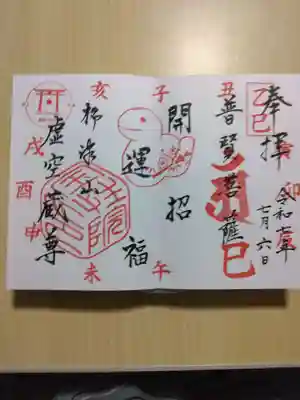 奉拝
乙巳
令和七年
七月六日
普賢菩薩
巳
開運招福
虚空蔵尊
子
丑
寅
卯
午
未
申
酉
戌
亥